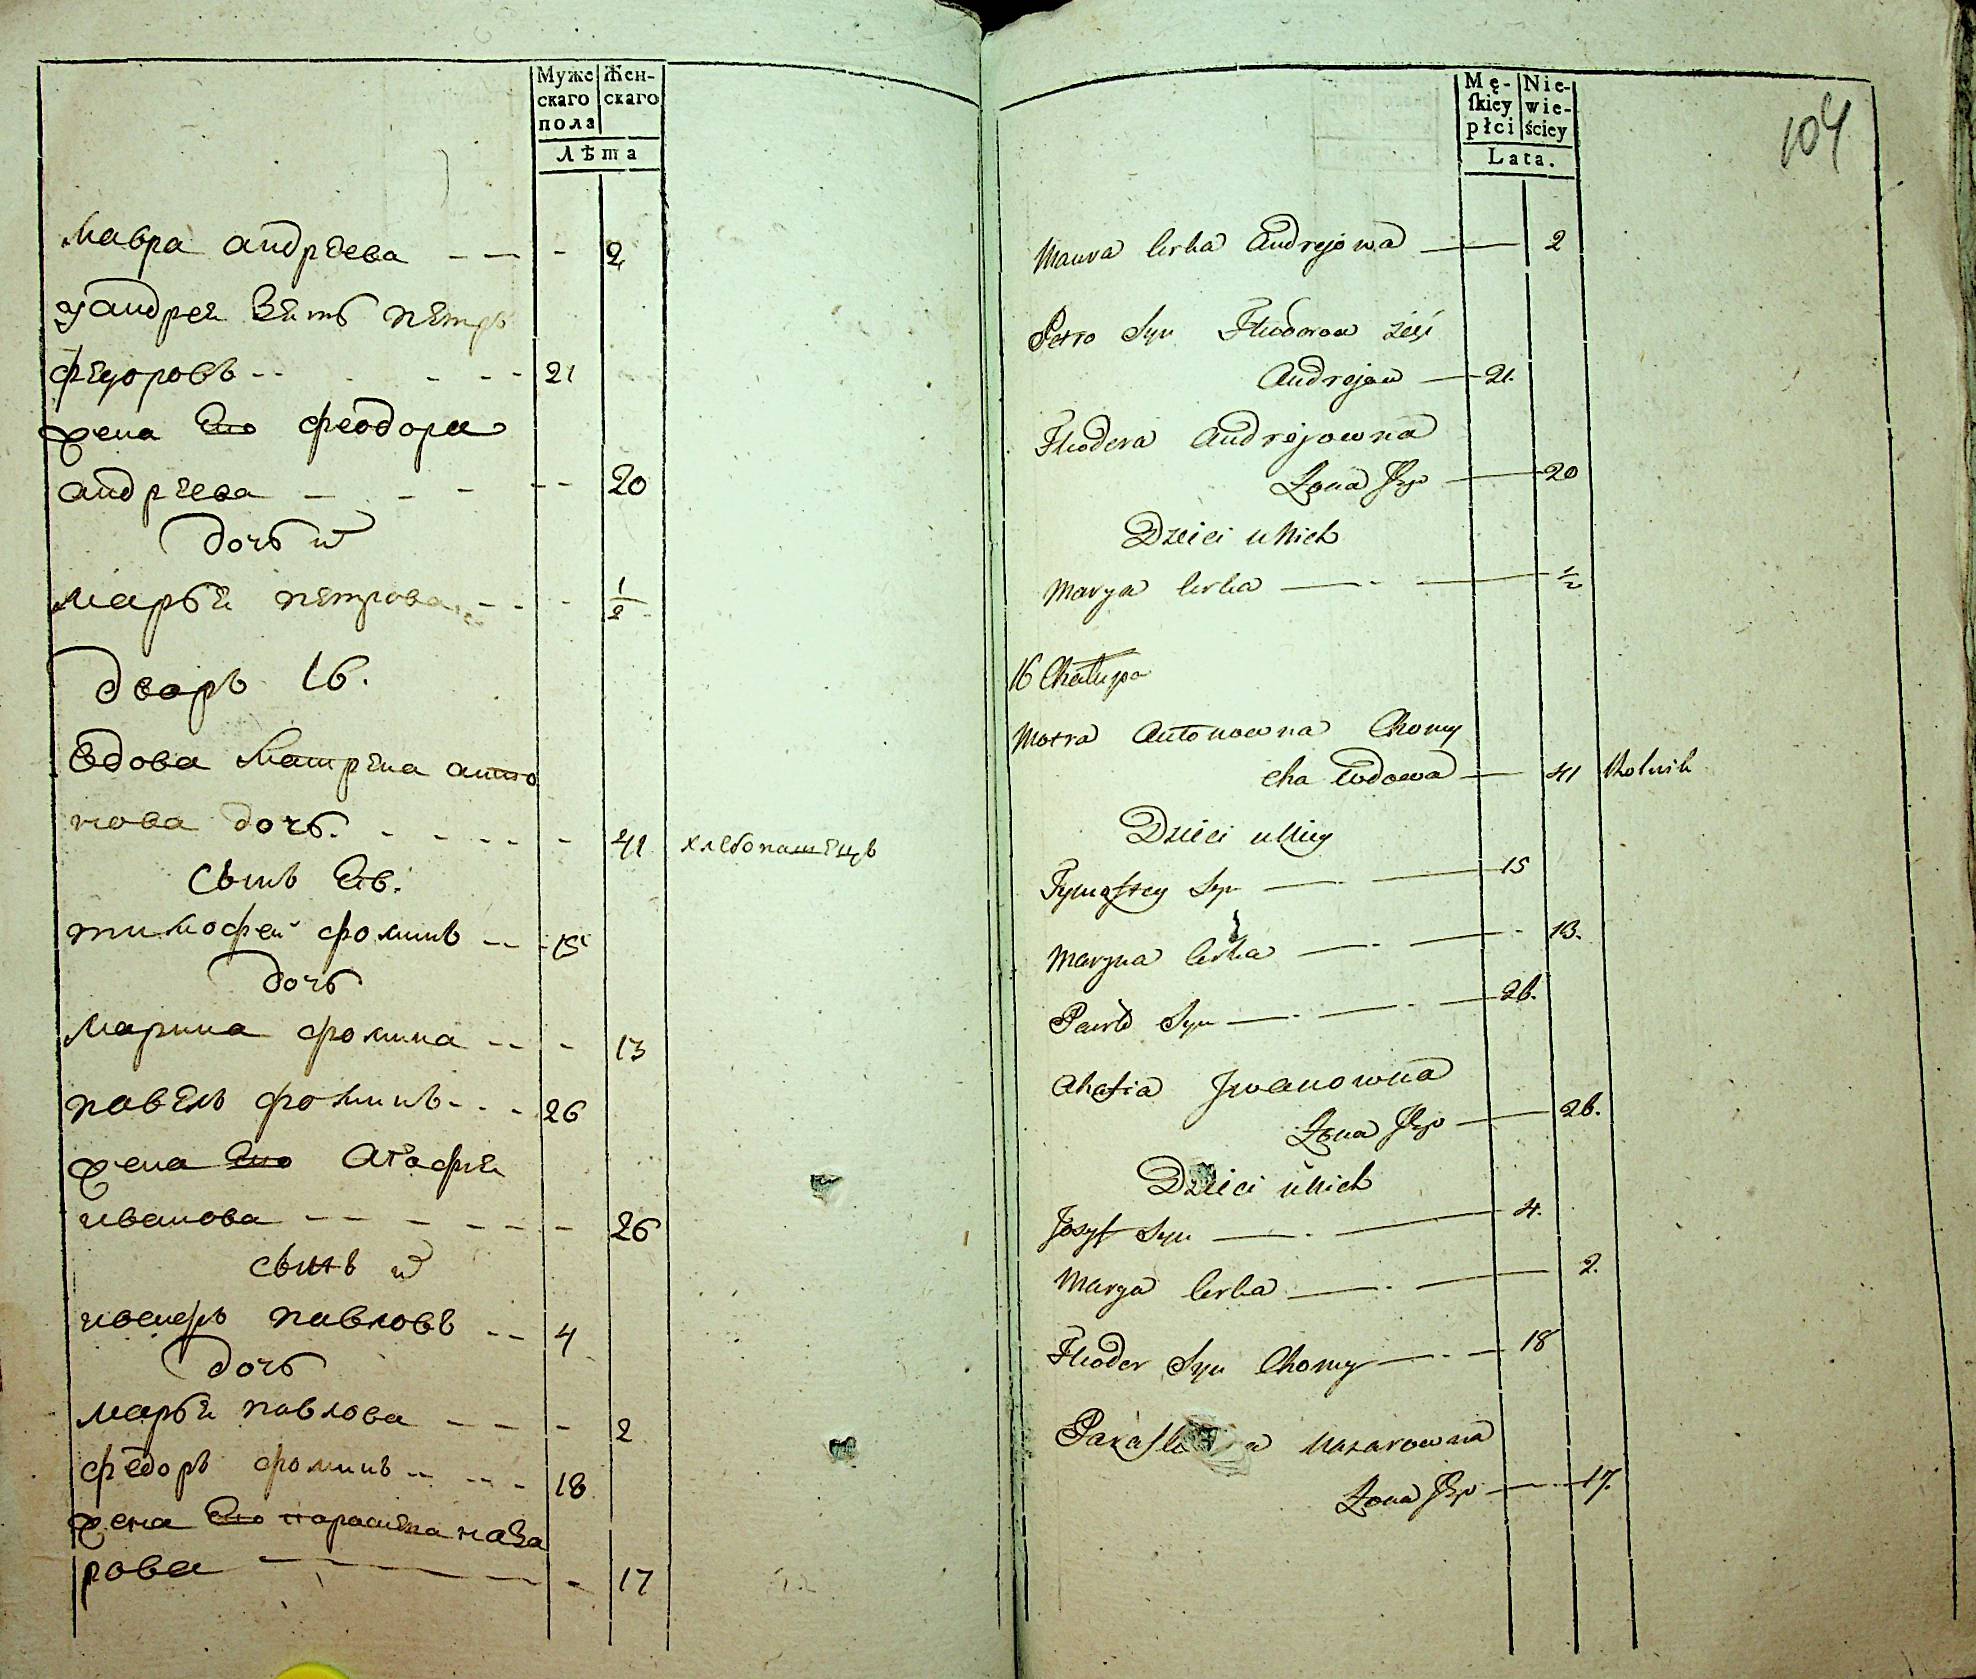 Муже Жен-
скаго скаго
пола
Лѣта
Мавра андрѣева - - - 2
у андрея зять петръ
федоровъ - - - - - 21
жена его феодора
андрѣева - - - - - 20
дочь их
марья петрова - - - 1/2
дворъ 16.
вдова матрена анто
нова дочь. - - - - - 41 хлебопашецъ
сынъ ев.
тимофей фоминъ - - - 15
дочь
марина фомина - - - 13
павелъ фоминъ - - - 26
жена его агафия
иванова - - - - - - 26
сынъ их
иосифъ павловъ - - 4
дочь
марья павлова - - - - 2
федоръ фоминъ - - - - 18
жена его параскева наза
рова - - - - - 17
Mę- Nie-
ſkiey wie-
płci ściey
Lata.
104
Mawra Corka Andrejowa — 2
Petro Syn Fhiodorow zięć
Andrejow — 21.
Fhiodora Andrejowna
Żona Jego — 20
Dzieci u Nich
Marya Corka — - — 1/2
16 Chałupa
Motra Antonowna Chomy
cha Wdowa — 41 Rolnik
Dzieci u Niey
Tymofiey Syn — — 15
Maryna Corka — - — - 13.
Pawło Syn — - — - — 26.
Ahafia Jwanowna
Żona Jego — 26.
Dzieci u Nich
Jozyf Syn — - — 4.
Marya Corka — - — 2.
Fhiodor Syn Chomy — - — 18
Nazarowna
Żona Jego — - — 17.